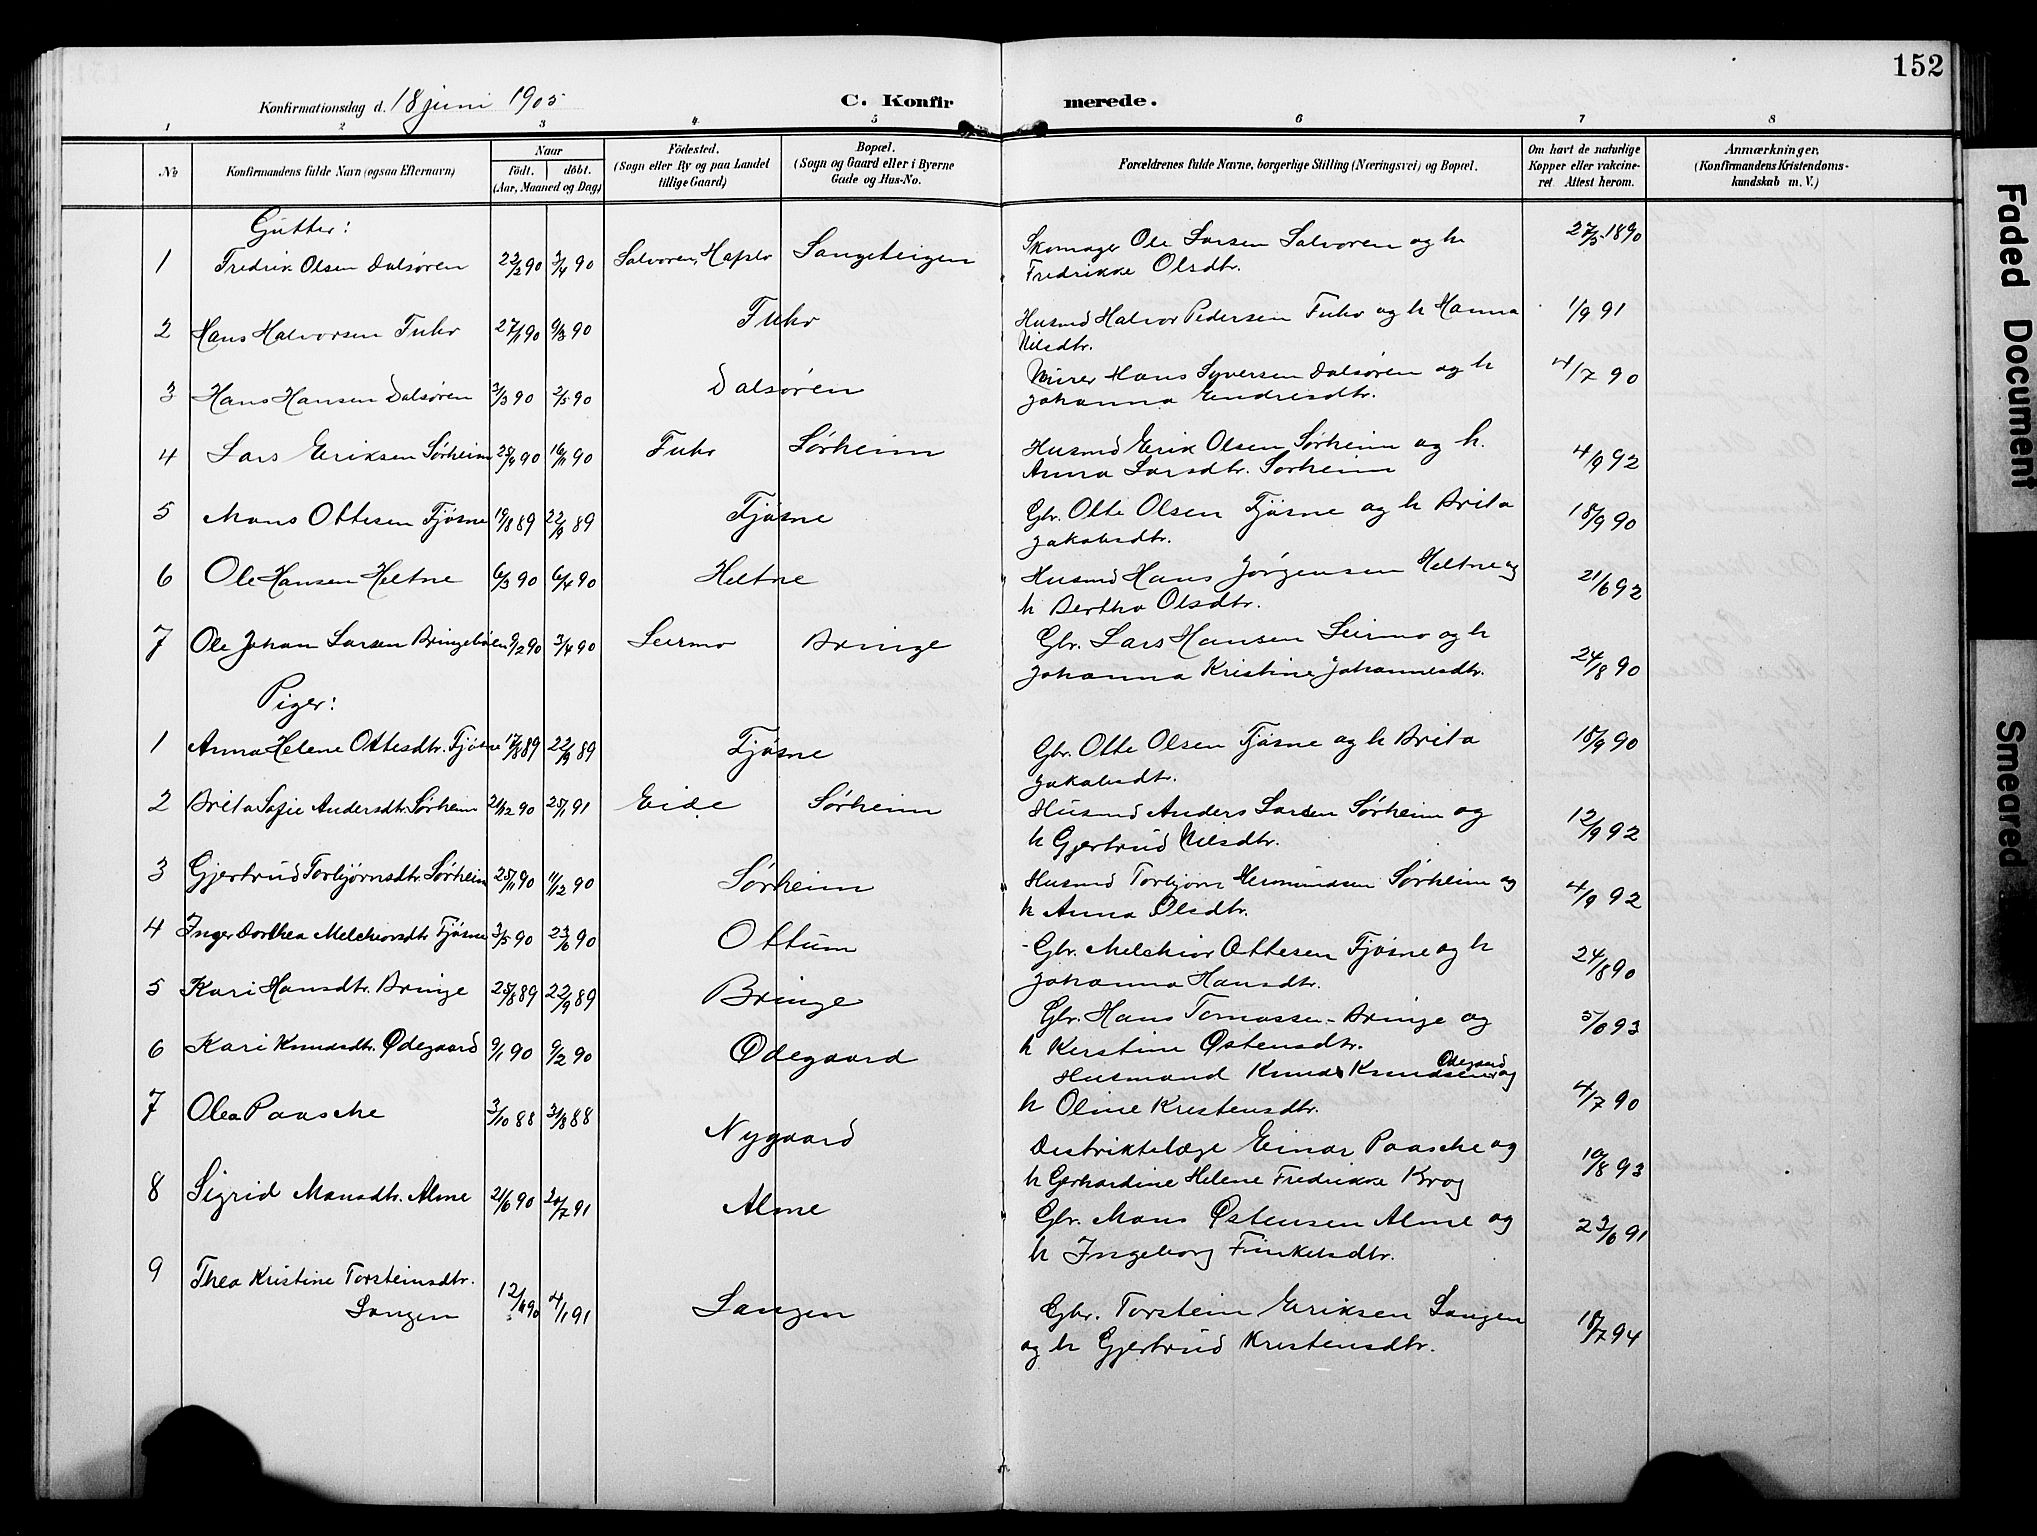 152
Konfirmationsdag d. 18 juni 1905
C. Konfirmerede.
1 2 3 4 5 6 7 8
No
Konfirmandens fulde Navn (ogsaa Efternavn)
Naar
Født. døbt.
(Aar, Maaned og Dag)
Fødested.
(Sogn eller By og paa Landet
tillige Gaard)
Bopæl.
(Sogn og Gaard eller i Byerne
Gade og Hus-No.
Forældrenes fulde Navne, borgerlige Stilling (Næringsvei) og Bopæl.
Om havt de naturlige
Kopper eller vakcine-
ret. Attest herom.
Anmærkninger,
(Konfirmandens Kristendoms-
kundskab m. V.)
Gutter:
1 Fredrik Olsen Dalsøren 22/2 90 3/4 90 Salvoren, Hafslo Langeteigen Skomager Ole Larsen Salvoren og h 27/5 1890
Fredrikke Olsdtr.
2 Hans Halvorsen Fuhr 27/1 90 9/3 90 Fuhr Husmd Halvor Pedersen Fuhr og h Hanna 1/9 91
Nilsdtr.
3 Hans Hansen Dalsøren 3/3 90 2/5 90 Dalsøren Murer Hans Syversen Dalsøren og h 4/7 90
Johanna Endresdtr.
4 Lars Eriksen Sørheim 25/9 90 16/11 90 Fuhr Sørheim Husmd Erik Olsen Sørheim og h. 4/9 92
Anna Larsdtr. Sørheim
5 Mons Ottesen Fjøsne 19/8 89 22/9 89 Fjøsne Gbr. Otte Olsen Fjøsne og h Brita 18/9 90
Jakobsdtr.
6 Ole Hansen Heltne 6/3 90 6/4 90 Heltne Husmd Hans Jørgensen Heltne og 21/6 92
h Bertha Olsdtr.
7 Ole Johan Larsen Bringebøen 9/2 90 3/4 90 Leirmo Bringe Gbr. Lars Hansen Leirmo og h 24/8 90
Johanna Kristine Johannesdtr.
Piger:
1 Anna Helene Ottesdtr. Fjøsne 17/8 89 22/9 89 Fjøsne Gbr. Otte Olsen Fjøsne og h Brita 18/9 90
Jakobsdtr.
2 Brita Sofie Andersdtr. Sørheim 21/12 90 25/1 91 Eide Sørheim Husmd Anders Larsen Sørheim og 12/9 92
h Gjertrud Nilsdtr.
3 Gjertrud Torbjørnsdtr Sørheim 25/11 90 11/12 90 Sørheim Husmd Torbjørn Hermundsen Sørheim og 4/9 92
h Anna Olsdtr.
4 Inger Dorthea Melchiorsdtr Fjøsne 3/5 90 23/6 90 Ottum Gbr. Melchior Ottesen Fjøsne og h 24/8 90
Johanna Hansdtr.
5 Kari Hansdtr. Bringe 25/8 89 22/9 89 Bringe Gbr. Hans Tomassen Bringe og 5/6 93
h Kerstine Østensdtr.
6 Kari Knudsdtr. Ødegaard 9/1 90 9/2 90 Ødegaard Husmand Knud Knudsen Ødegaard og 4/7 90
h Oline Kristensdtr.
7 Olea Paasche 3/10 88 3/8 88 Nygaard Distriktslæge Einar Paasche og 19/8 93
h Gerhardine Helene Fredrikke Krog
8 Sigrid Monsdtr. Alme 21/6 90 20/7 91 Alme Gbr. Mons Østensen Alme og 23/6 91
h Ingeborg Finkelsdtr.
9 Thea Kristine Torsteinsdtr. 12/11 90 4/1 91 Langen Gbr. Torstein Eriksen Langen 18/7 94
Langen og h Gjertrud Kristensdtr.
Faded Document
Smeared